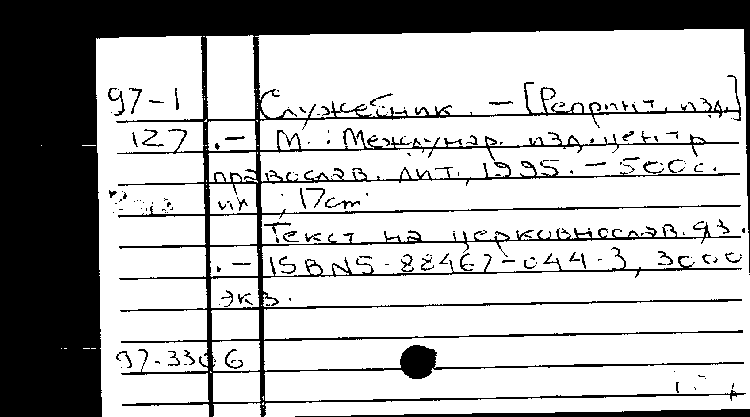 97-1 Служебник. - [Репринт. изд.]
127 .- М. : Междунар. изд. центр
православ. лит., 1995. - 500 с.
; 17 cm
Текст на церковнослав. яз.
.- ISBN 5-88467-044-3, 3000
экз.
97-3306